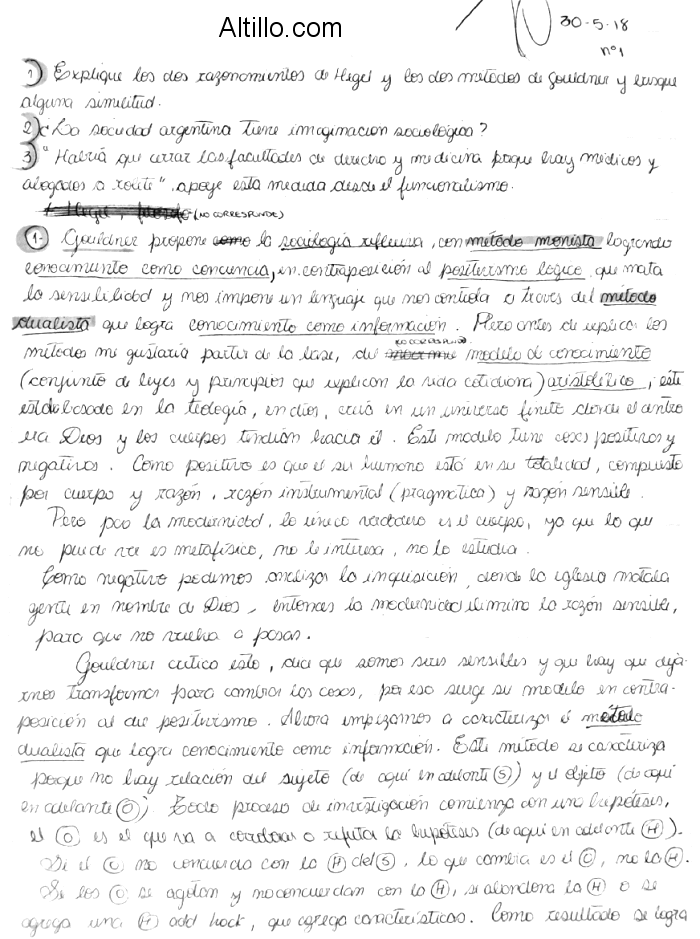 Altillo.com
30-5-18
nº1
1) Explique los dos razonamientos de Hegel y los dos metodos de Gouldner y busque
alguna similitud.
2) ¿La sociedad argentina tiene imaginacion sociológica?
3) "Habria que cerrar las facultades de derecho y medicina porque hay médicos y
abogados a roete", apoye esta medida desde el funcionalismo.
(NO CORRESPONDE)
1- Gouldner propone como la sociología reflexiva, con método monista logrando
conocimiento como conciencia, en contraposición al positivismo lógico que mata
la sensibilidad y nos impone un lenguaje que nos controla a traves del método
dualista que logra conocimiento como información. Pero antes de explicar los
NO CORRESPONDE
métodos me gustaría partir de la base, del modelo de conocimiento
(conjunto de leyes y principios que explican la vida cotidiana) aristotélico, éste
está basado en la teología, en dios, creia en un universo finito donde el centro
era Dios y los cuerpos tendían hacia él. Este modelo tiene cosas positivas y
negativas. Como positivo es que el ser humano está en su totalidad, compuesto
por cuerpo y razón, razón instrumental (pragmatica) y razon sensible.
Pero para la modernidad, lo único verdadero es el cuerpo, ya que lo que
no puede ver es metafísico, no le interesa, no lo estudia.
Como negativo podemos analizar la inquisición, donde la iglesia mataba
gente en nombre de Dios, entonces la modernidad elimina la razón sensible,
para que no vuelva a pasar.
Gouldner critica esto, dice que somos seres sensibles y que hay que deja-
rnos transformar para cambiar las cosas, por eso surge su modelo en contra-
posición al del positivismo. Ahora empezamos a caracterizar el método
dualista que logra conocimiento como información. Este método se caracteriza
porque no hay relación del sujeto (de aqui en adelante S) y el objeto (de aqui
en adelante O). Todo proceso de investigación comienza con una hipótesis,
el O es el que va a corroborar o refutar la hipótesis (de aqui en adelante H).
Si el O no concuerda con la H del S, lo que cambia es el O, no la H.
Si los O se agotan y no concuerdan con la H, se abandona la H o se
agrega una H add hock, que agrega características. Como resultado se logra